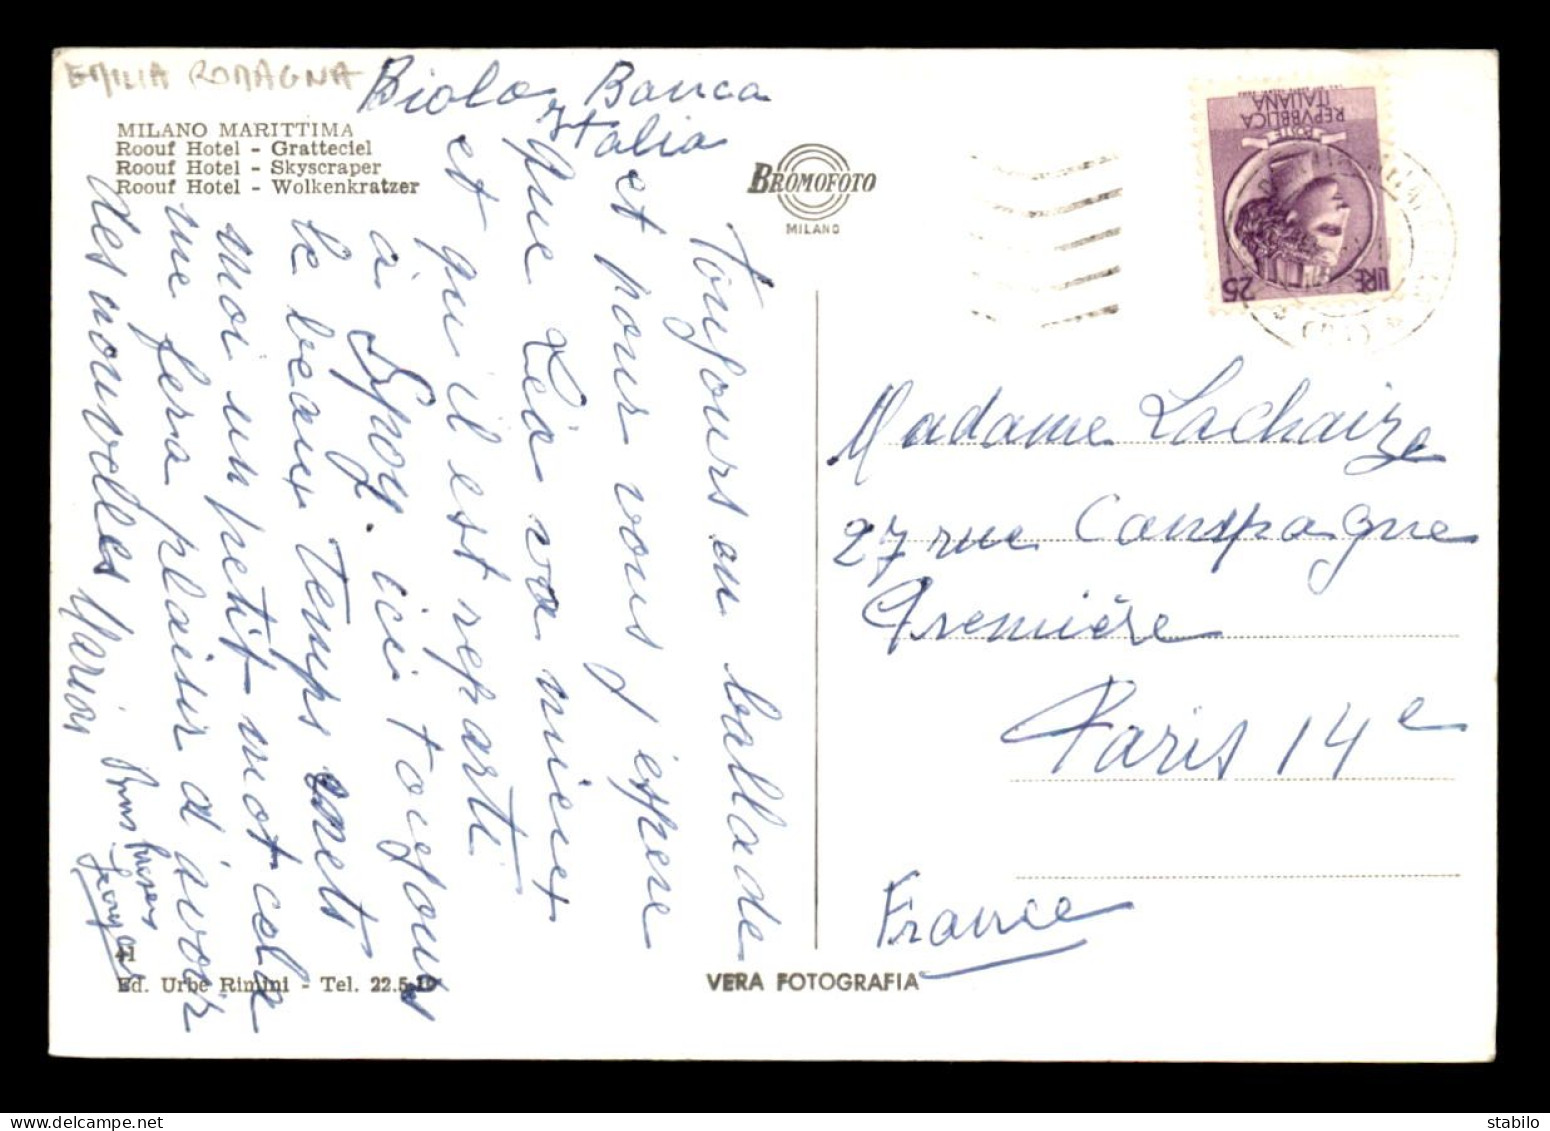 EMILIA ROMAGNA
MILANO MARITTIMA
Roouf Hotel - Gratteciel
Roouf Hotel - Skyscraper
Roouf Hotel - Wolkenkratzer
Biola Banca
Italia
BROMOFOTO
MILANO
REPVBBLICA
ITALIANA
POSTE
LIRE 25
Toujours en ballade
et pour vous j'espere
que Léa va mieux
et qu'il est reparti
à Spoy. ici toujours
le beau temps
moi un petit mot cela
me fera plaisir d'avoir
des nouvelles
Bons baisers
Madame Lachaize
27 rue Campagne
Première
Paris 14e
France
41
Ed. Urbe Rimini - Tel. 22.5.10
VERA FOTOGRAFIA
stabilo
delcampe.net